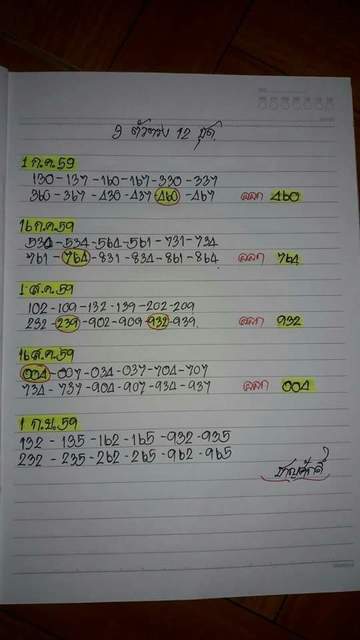 3 ตัวตรง 12 ชุด
1 ก.ค. 59
130-137-160-167-330-337
360-367-430-437-460-467 ออก 460
16 ก.ค. 59
531-534-564-561-731-734
761-764-831-834-861-864 ออก 764
1 ส.ค. 59
102-109-132-139-202-209
232-239-902-909-932-939. ออก 932
16 ส.ค. 59
004-007-034-037-704-707
734-737-904-907-934-937 ออก 004
1 ก.ย. 59
132-135-162-165-932-935
232-235-262-265-962-965
ชาญศักดิ์